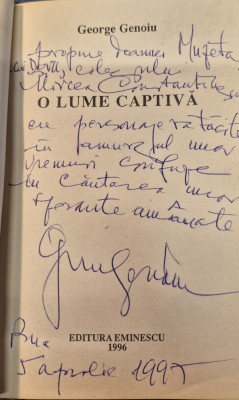 George Genoiu
propune Doamnei
Mircea Constantinescu
O LUME CAPTIVĂ
cu personaje rătăcite
în unor
vremuri confuze
în căutarea unor
speranțe amânate
EDITURA EMINESCU
1996
5 aprilie 1997